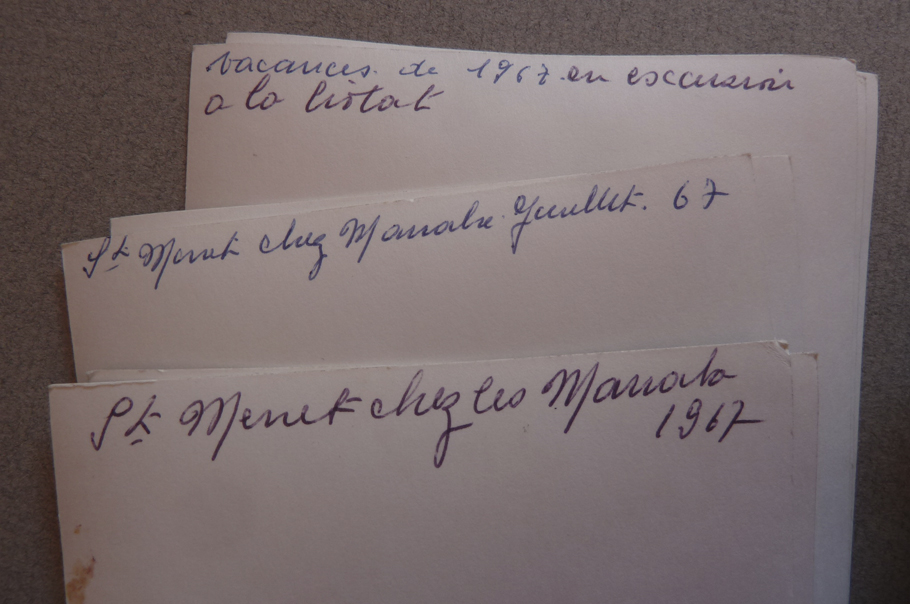 vacances de 1967 en excursion
a la Ciotat
St Menet chez Juillet. 67
St Menet chez les
1967